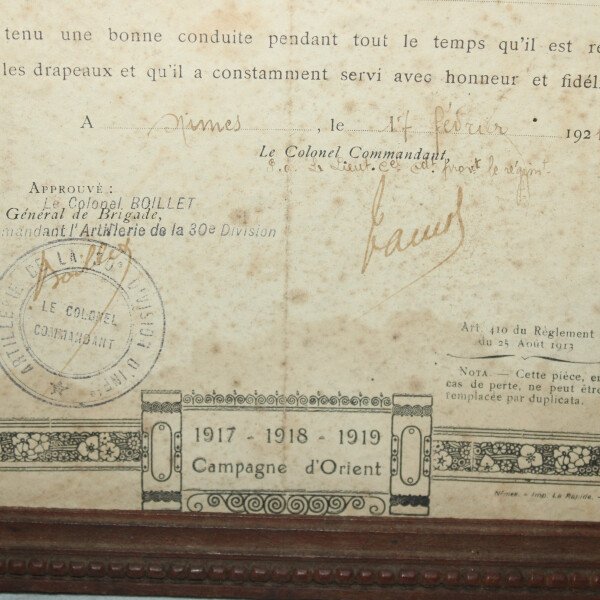 tenu une bonne conduite pendant tout le temps qu'il est re
les drapeaux et qu'il a constamment servi avec honneur et fidél
A Nimes, le 17 février 192
Le Colonel Commandant,
P.o. Le Lieut. Cel adt provt le régimt
APPROUVÉ :
Le Colonel BOILLET
Général de Brigade,
mandant l'Artillerie de la 30e Division
ARTILLERIE DE LA 30e DIVISION D'INFie
LE COLONEL
COMMANDANT
Art. 410 du Règlement
du 25 Août 1913
NOTA. — Cette pièce, en
cas de perte, ne peut être
remplacée par duplicata.
1917 - 1918 - 1919
Campagne d'Orient
Nîmes. - Imp. La Rapide. -